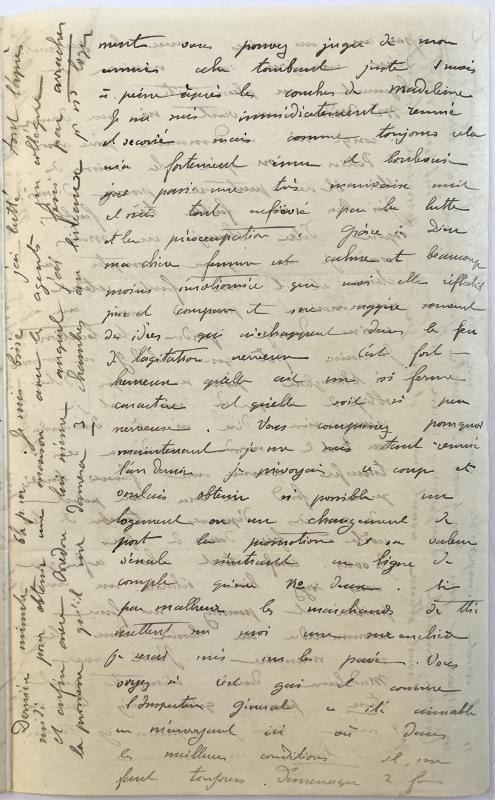 ment vous pouvez juger de mon
ennui cela tombant juste 1 mois
à peine après les couches de Madeleine
Je me suis immédiatement remué
et secoué mais comme toujours cela
m'a fortement ému et
que passé une très mauvaise nuit
et suis tout enfiévré par la lutte
et la préoccupation ; grâce à Dieu
ma chère femme est calme et beaucoup
moins que moi elle réfléchit
juge et compare et me suggère souvent
des idées qui m'échappent dans le feu
de l'agitation nerveuse. C'est fort
heureux qu'elle ait un si ferme
caractère et qu'elle soit si peu
nerveuse. Vous comprenez pourquoi
maintenant je me suis tant remué
l'an dernier je prévoyais ce coup et
voulais obtenir si possible un
logement ou un changement de
port la promotion et sa valeur
vénale n'entrant en ligne de
compte qu'en No deux. Si
par malheur les marchands de thé
mettent sur moi une surenchère
je serai mis sur le pavé. Vous
voyez si c'est gai et comme
l'Inspecteur général a été aimable
en m'envoyant ici où dans
les meilleures conditions il me
faut toujours déménager 2 fois
Dernière minute 6h p.m. Je me suis j'ai lutté tout l'après
midi pour obtenir une maison avec les agents d'un collègue
et enfin avec Oredon lui même auquel j'ai fini par arracher
la promesse qu'il me donnera 3 chambres au hulance p. ns loger